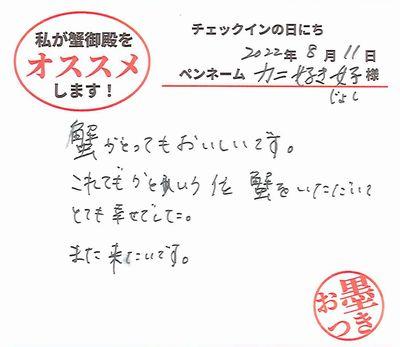 私が蟹御殿を
オススメ
します！
チェックインの日にち
2022年8月11日
ペンネーム カニ好き好子様
じょし
蟹がとってもおいしいです。
これでもかという位 蟹をいただいて
とても幸せでした。
また来たいです。
お墨つき